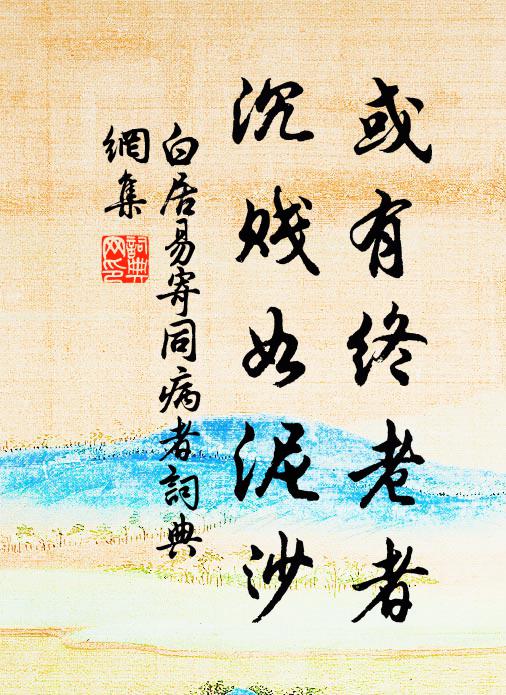 或有终老者
沉贱如泥沙
白居易寄同病者詞典
網集
詞典网印